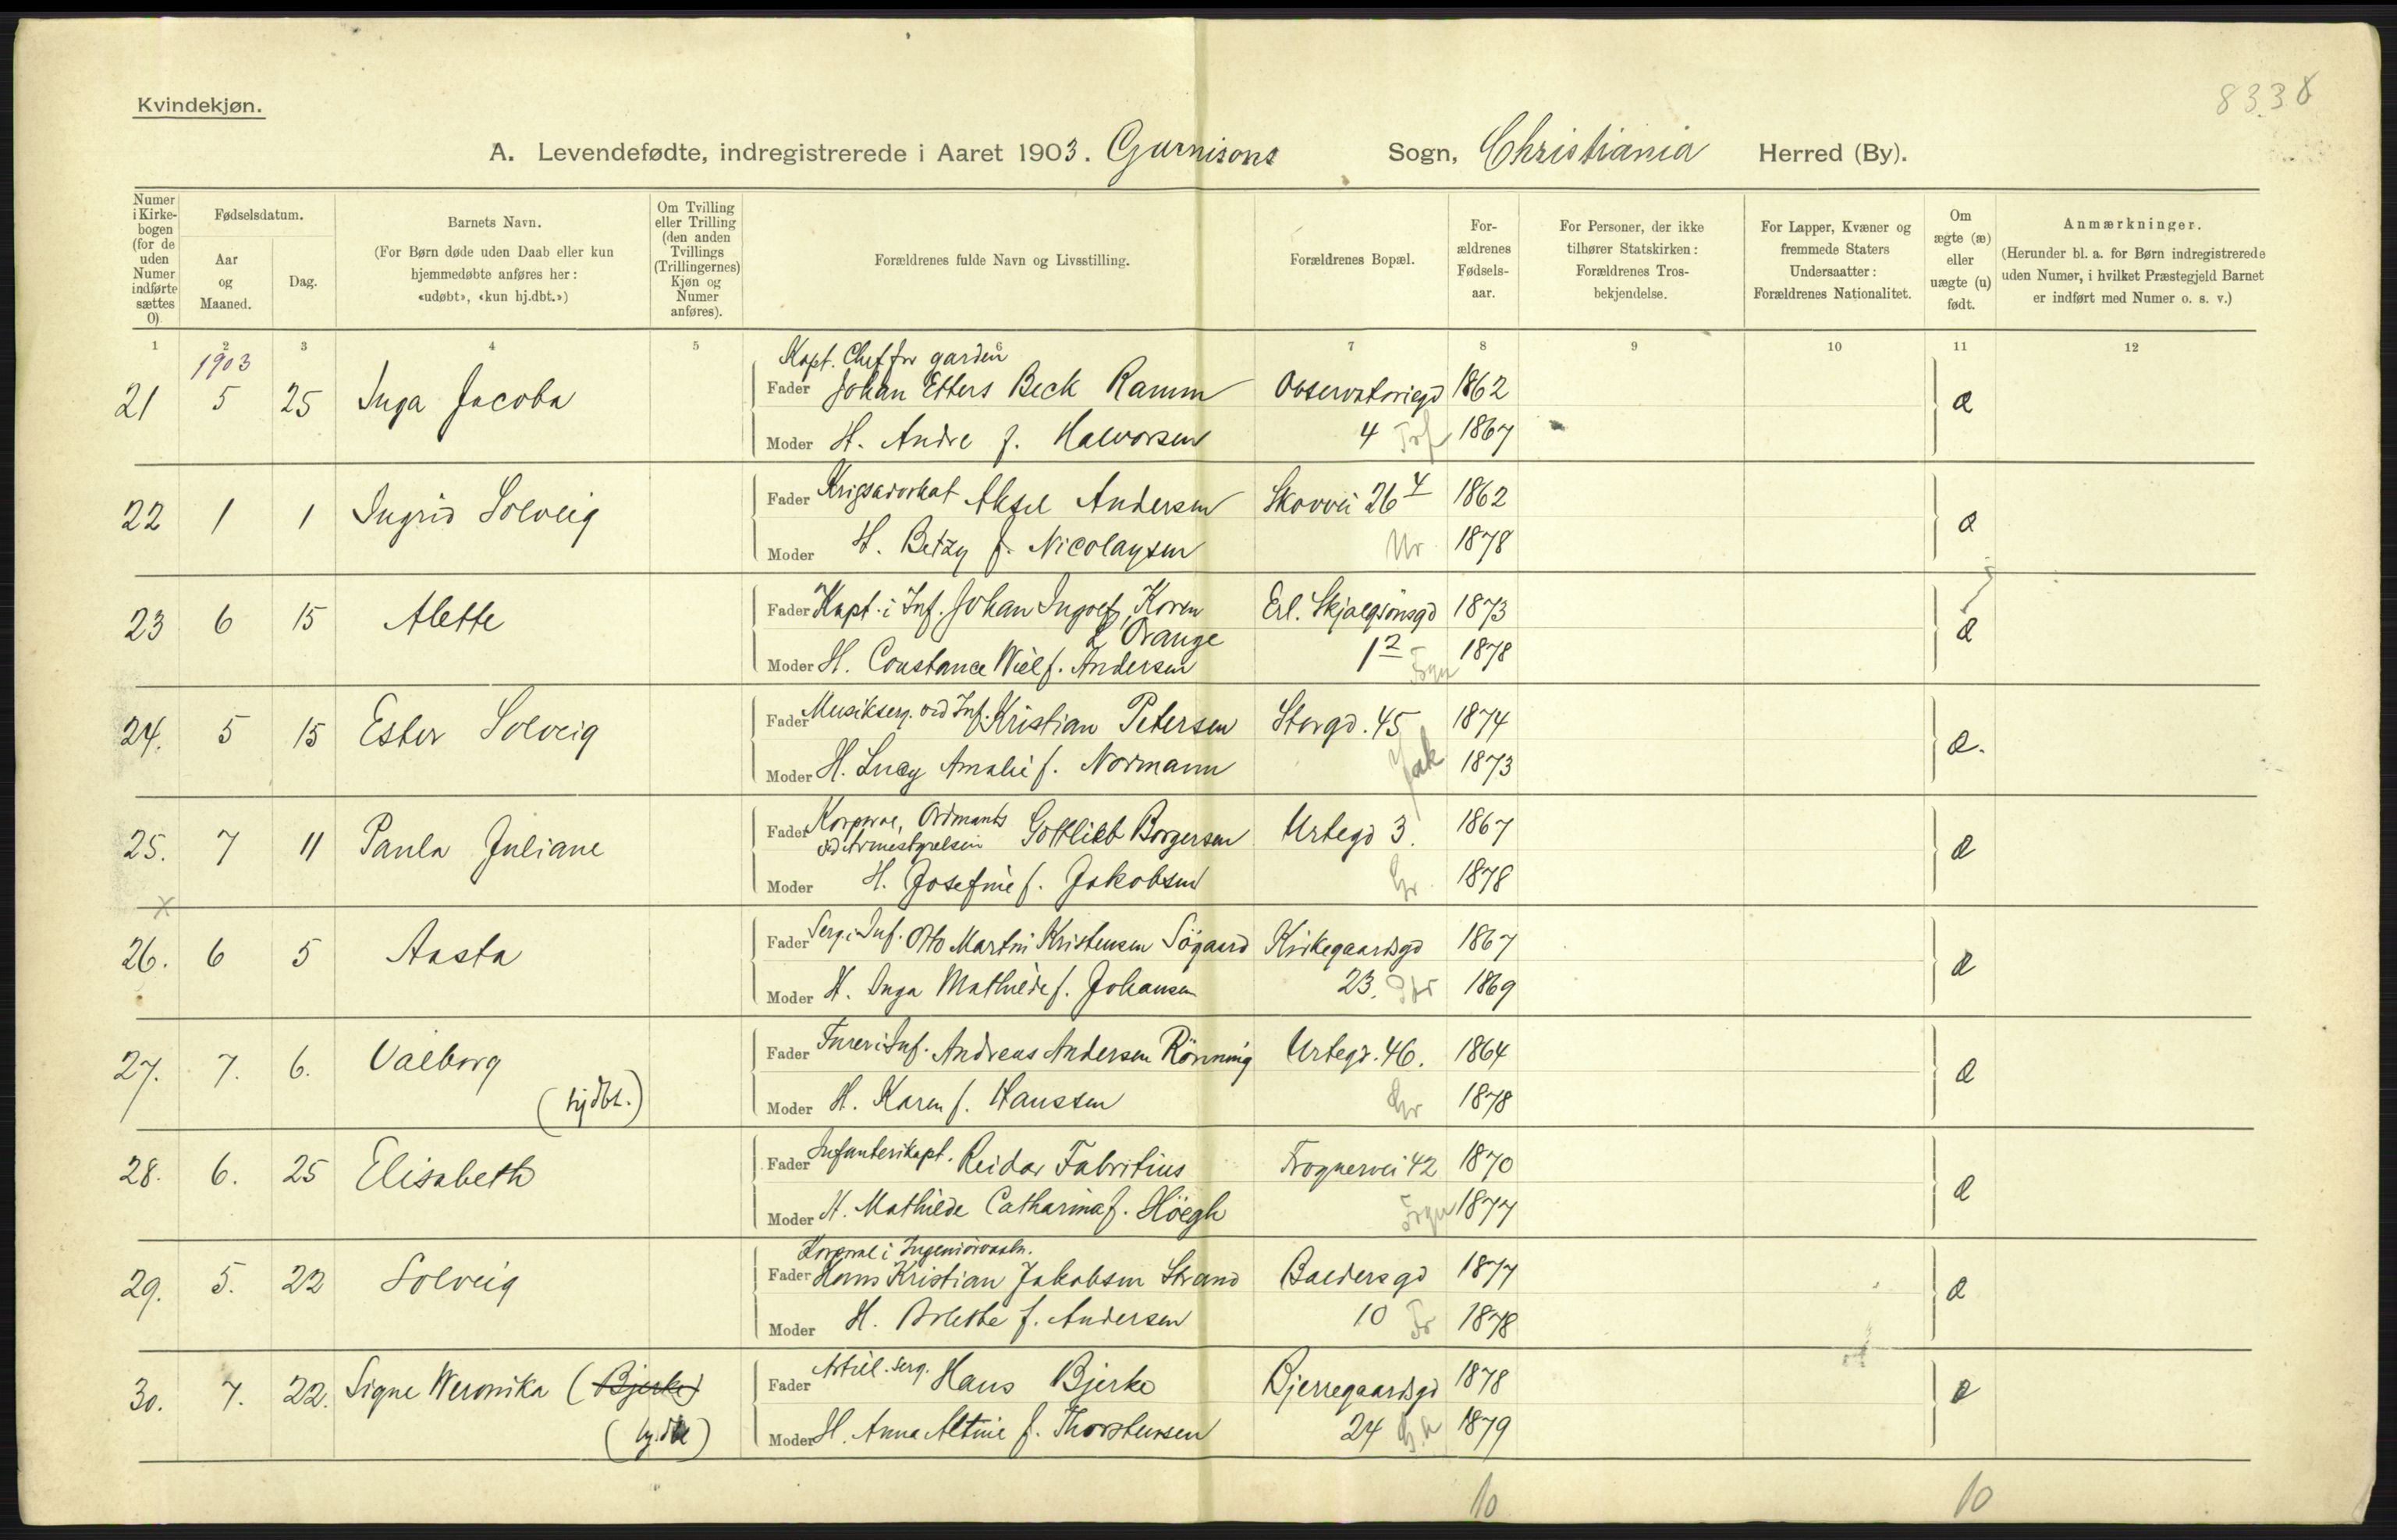 8338
Kvindekjøn.
A. Levendefødte, indregistrerede i Aaret 1903. Garnisons Sogn, Christiania Herred (By).
Numer i Kirke-bogen (for de uden Numer indførte sættes 0)
Fødselsdatum.
Aar og Maaned.
Dag.
Barnets Navn.
(For Børn døde uden Daab eller kun hjemmedøbte anføres her: «udøbt», «kun hj.dbt.»)
Om Tvilling eller Trilling (den anden Tvillings (Trillingernes) Kjøn og Numer anføres).
Forældrenes fulde Navn og Livsstilling.
Forældrenes Bopæl.
For-ældrenes Fødsels-aar.
For Personer, der ikke tilhører Statskirken: Forældrenes Tros-bekjendelse.
For Lapper, Kvæner og fremmede Staters Undersaatter: Forældrenes Nationalitet.
Om ægte (æ) eller uægte (u) født.
Anmærkninger.
(Herunder bl. a. for Børn indregistrerede uden Numer, i hvilket Præstegjeld Barnet er indført med Numer o. s. v.)
1 2 3 4 5 6 7 8 9 10 11 12
1903
Kapt. Chef for garden
21 5 25 Inga Jacoba Fader Johan Ebbers Beck Ramm Observatoriegd 1862 æ
Moder H. Andre f. Halvorsen 4 1867
22 1 1 Ingrid Solveig Fader Krigsadvokat Aksel Andersen Skovvei 26 4 1862 æ
Moder H. Betzy f. Nicolaysen Ur 1878
23 6 15 Alette Fader Kapt. i Inf. Johan Ingolf Koren Erl. Skjalgsönsgd 1873 æ
L'Orange
Moder H. Constance Wiel f. Andersen 1 2 Frgn 1878
24. 5 15 Ester Solveig Fader Musikserg. ved Inf. Kristian Petersen Storgd. 45 1874 æ.
Moder H. Lucy Amalie f. Normann Jak 1873
25. 7 11 Paula Juliane Fader Korporal, Ordinants ved Armestyrelsen Gottlieb Borgersen Urtegd 3. 1867 æ
Moder H. Josefine f. Jakobsen Gr. 1878
x
26. 6 5 Aasta Fader Serg. i Inf. Otto Martin Kristensen Sögaard Kirkegaardsgd 1867 æ
Moder H. Inga Mathilde f. Johansen 23. 1869
27. 7. 6. Valborg Fader Furer i Inf. Andreas Andersen Rönning Urtegd. 46. 1864 æ
(hjdbt.) Moder H. Karen f. Hanssen Gr 1878
28. 6. 25 Elisabeth Fader Infanterikapt. Reidar Fabritius Frognervei 42 1870 æ
Moder H. Mathilde Catharina f. Höegh Frgn 1877
Korporal i Ingeniörvaabn.
29. 5. 22 Solveig Fader Hans Kristian Jakobsen Strand Baldersgd 1877 æ
Moder H. Bolette f. Andersen 10 Fr 1878
30. 7. 22. Signe Weronika (Bjerke) Fader Artill. Serg. Hans Bjerke Bjerregaardsgd 1878 æ
(hj.dbt) Moder H. Anna Altine f. Thorstensen 24 G.A 1879
10 10